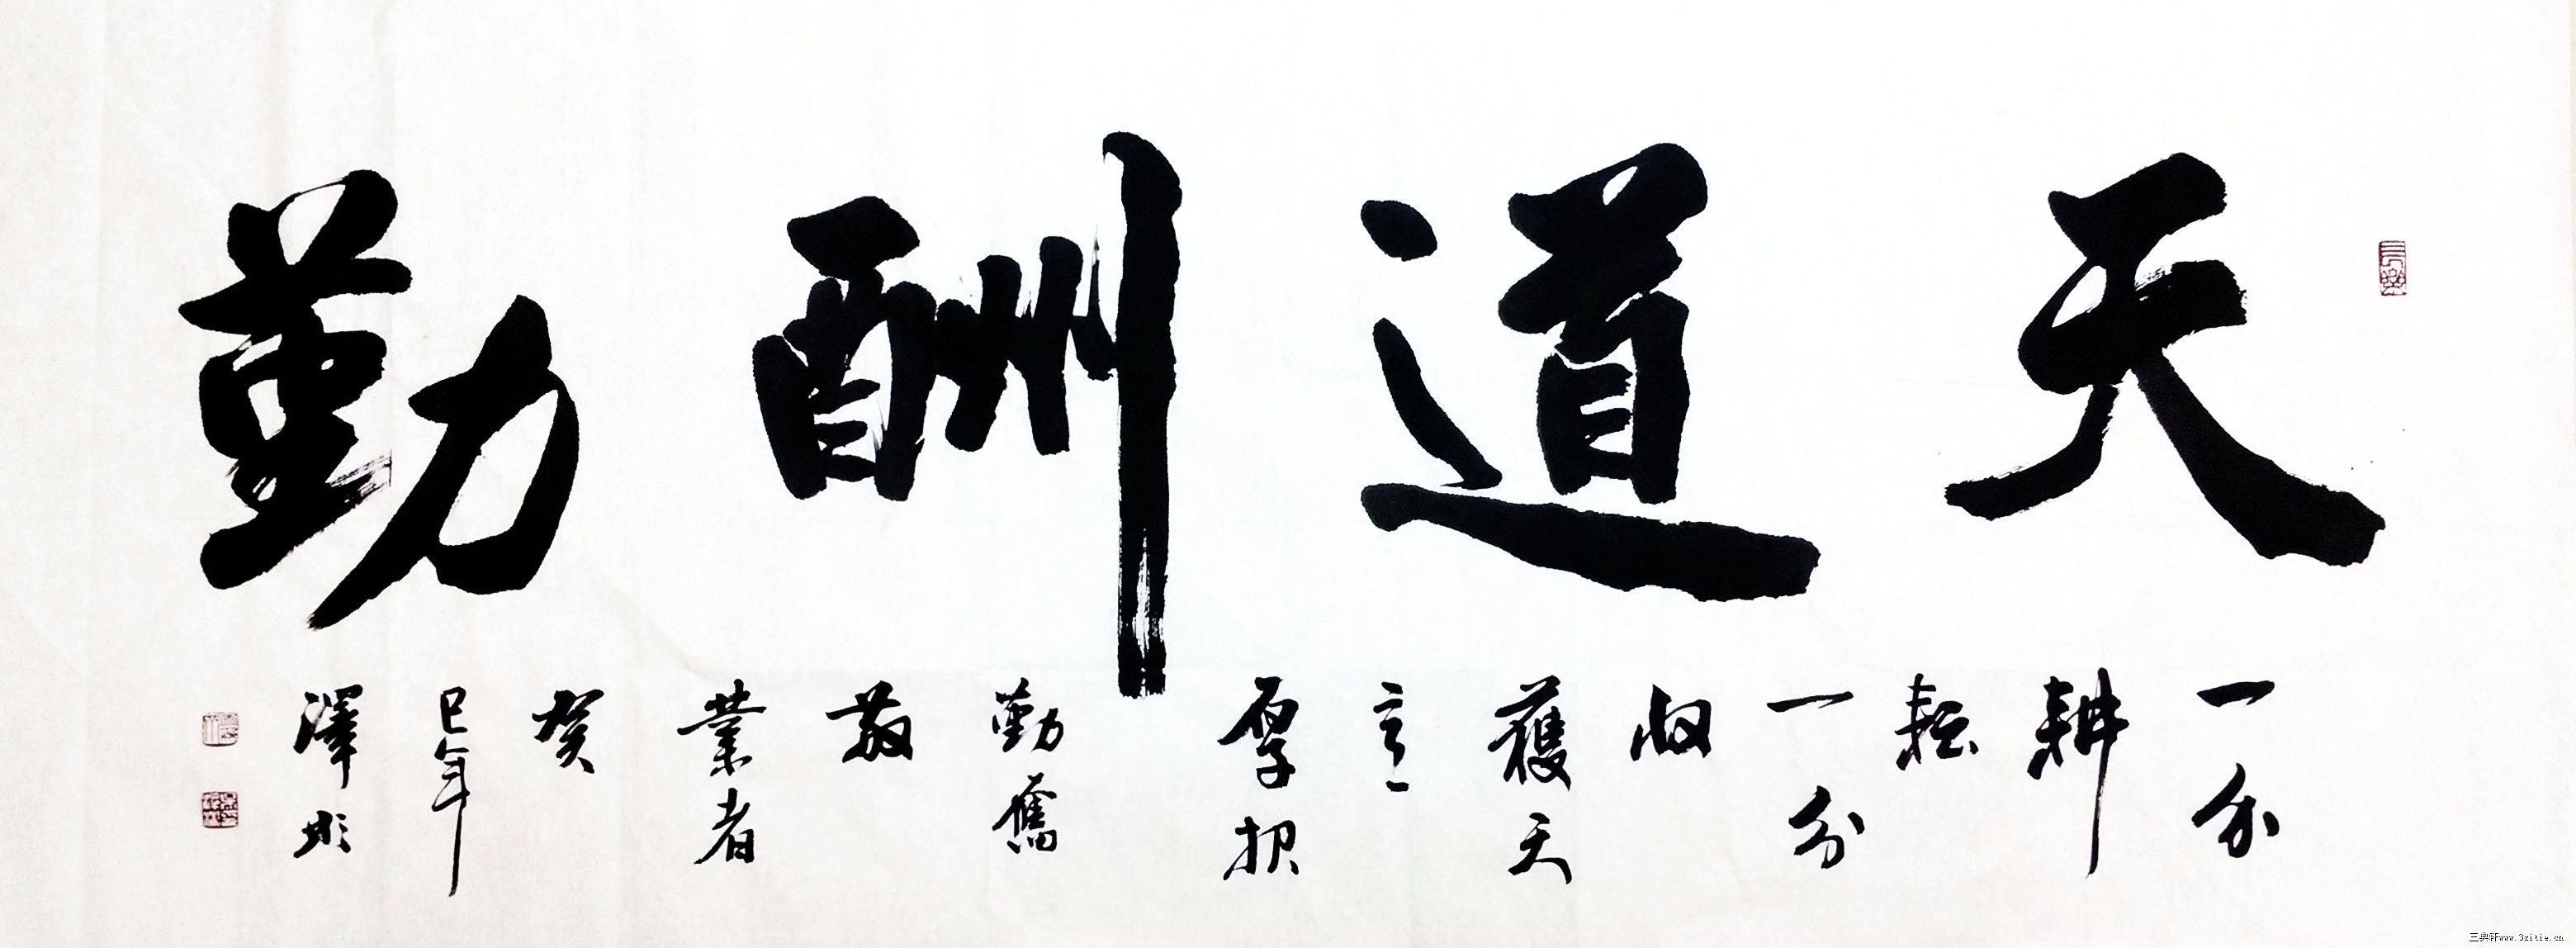 天道酬勤
一分
耕
耘
一分
收
獲天
意
厚报
勤奮
敬
業者
癸
巳年
澤彬
三典轩www.3zitie.cn